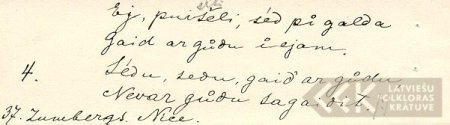 elti
Ej, puišeli, sēd pi galda
Gaid ar gùdu iejam.
4. Sēdu, sedu, gaid' ar gùdu
Nevar gùdu sagaidit.
37. Zumbergs. Nīce.
LATVIEŠU
FOLKLORAS
KRĀTUVE